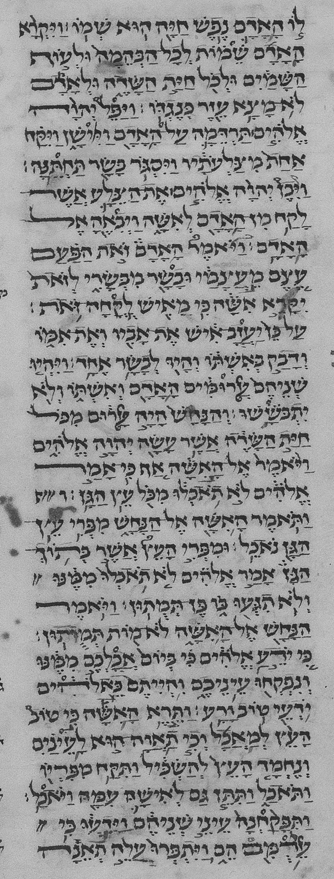 לו האדם נפש חיה הוא שמו ויקרא
האדם שמות לכל הבהמה ולעוף
השמים ולכל חית השדה ולאדם
לא מצא עזר כנגדו ויפל יהוה
אלהים תרדמה על האדם ויישן ויקח
אחת מצלעתיו ויסגר בשר תחתנה
ויבן יהוה אלהים את הצלע אשר
לקח מן האדם לאשה ויבאה אל
האדם ויאמר האדם זאת הפעם
עצם מעצמי ובשר מבשרי לזאת
יקרא אשה כי מאיש לקחה זאת
על כן יעזב איש את אביו ואת אמו
ודבק באשתו והיו לבשר אחד ויהיו
שניהם ערומים האדם ואשתו ולא
יתבששו והנחש היה ערום מכל
חית השדה אשר עשה יהוה אלהים
ויאמר אל האשה אף כי אמר
אלהים לא תאכלו מכל עץ הגן
ותאמר האשה אל הנחש מפרי עץ
הגן נאכל ומפרי העץ אשר בתוך
הגן אמר אלהים לא תאכלו ממנו
ולא תגעו בו פן תמתון ויאמר
הנחש אל האשה לא מות תמתון
כי ידע אלהים כי ביום אכלכם ממנו
ונפקחו עיניכם והייתם כאלהים
ידעי טוב ורע ותרא האשה כי טוב
העץ למאכל וכי תאוה הוא לעינים
ונחמד העץ להשכיל ותקח מפריו
ותאכל ותתן גם לאישה עמה ויאכל
ותפקחנה עיני שניהם וידעו כי
ערמים הם ויתפרו עלה תאנה